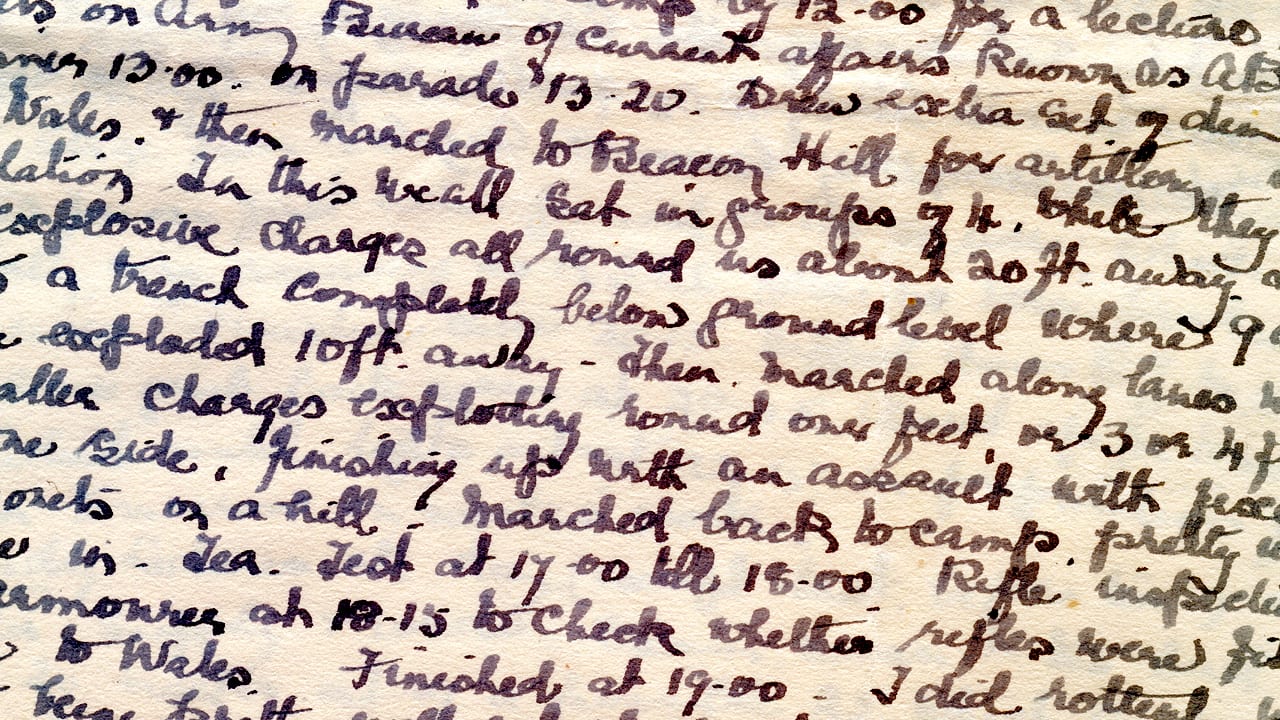 on Army Bureau of Current affairs Known as AB
13-00. on parade 13-20. Drew extra set of
Wales. & then marched to Beacon Hill for artillery
lation In this we all sat in groups of 4. While they
explosive charges all round us about 20ft. away.
a trench completely below ground level where 9
exploded 10ft. away - then marched along lanes
aller charges exploding round our feet, or 3 or 4 f
ne side, finishing up with an assault with fixe
onets on a hill. Marched back to camp. pretty
in. Tea. Test at 17-00 till 18-00 Rifle inspecti
armourer at 18-15 to check whether rifles were fi
to Wales. Finished at 19-00. I did rotten